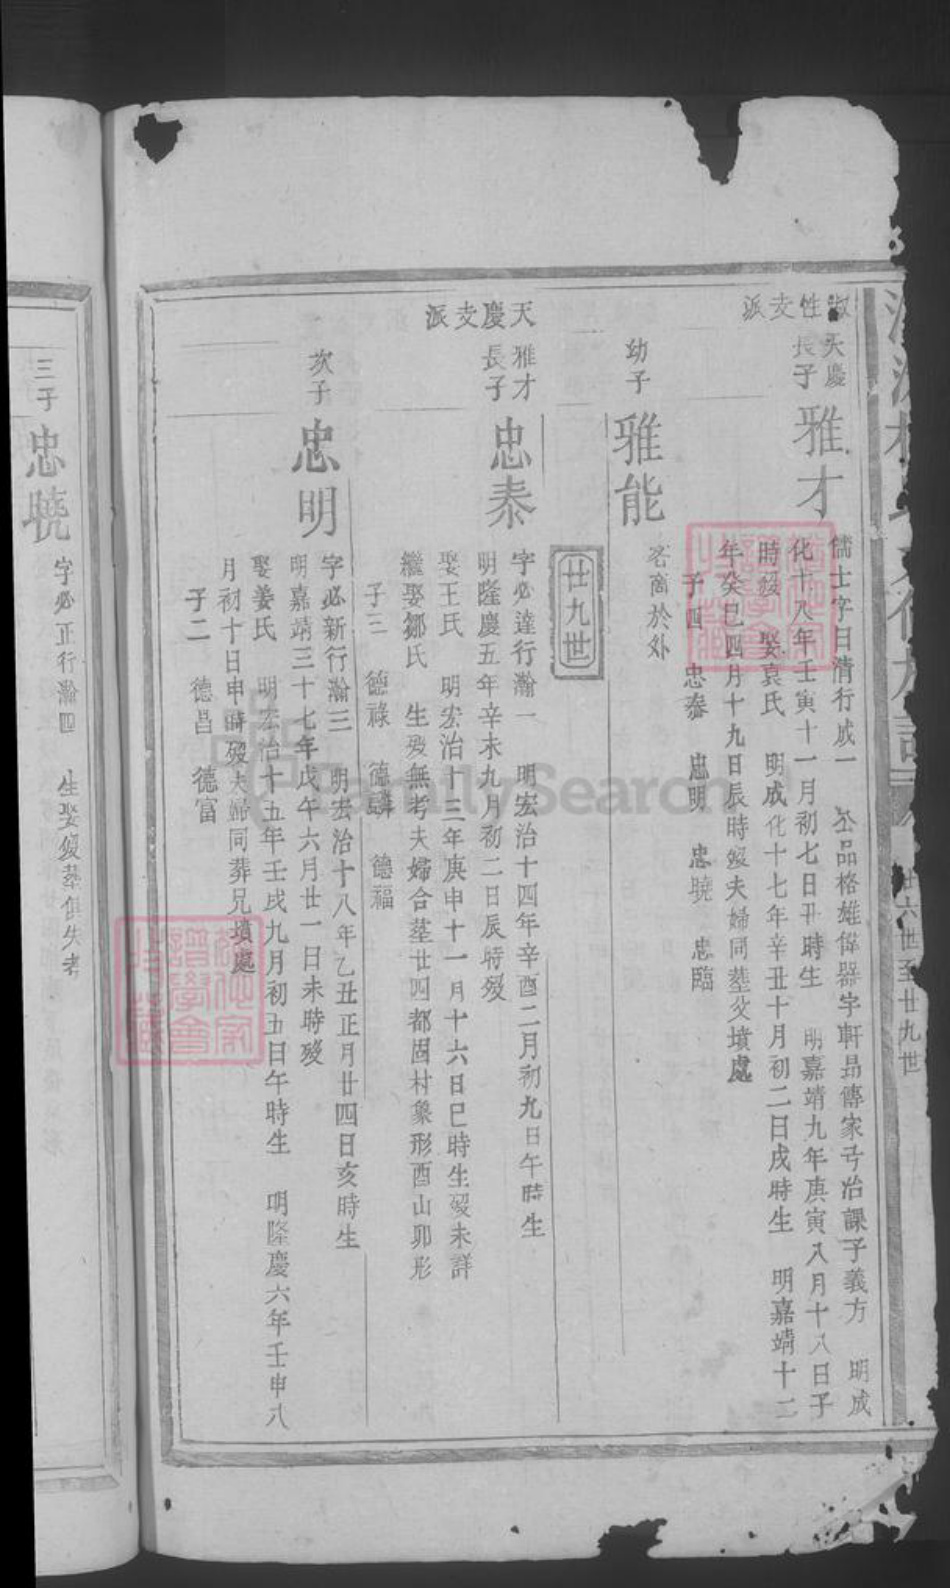 淑性支派
天慶
長子
雅才
儒士字曰清行威一 公品格雄偉器宇軒昂傳家弓冶課子義方 明成
化十八年壬寅十一月初七日丑時生 明嘉靖九年庚寅八月十八日子
時歿 娶袁氏 明成化十七年辛丑十月初二日戌時生 明嘉靖十二
年癸巳四月十九日辰時歿夫婦同塟父墳處
子四 忠泰 忠明 忠曉 忠臨
幼子
雅能
客商於外
廿九世
天慶支派
雅才
長子
忠泰
字必達行瀚一 明宏治十四年辛酉二月初九日午時生
明隆慶五年辛未九月初二日辰時歿
娶王氏 明宏治十三年庚申十一月十六日巳時生歿未詳
繼娶鄒氏 生歿無考夫婦合塟廿四都固村象形酉山卯形
子三 德祿 德麟 德福
次子
忠明
字必新行瀚三 明宏治十八年乙丑正月廿四日亥時生
明嘉靖三十七年戊午六月廿一日未時歿
娶姜氏 明宏治十五年壬戌九月初五日午時生 明隆慶六年壬申八
月初十日申時歿夫婦同葬兄墳處
子二 德昌 德富
三子
忠曉
字必正行瀚四 生娶歿塟俱失考
廿六世至廿九世
FamilySearch